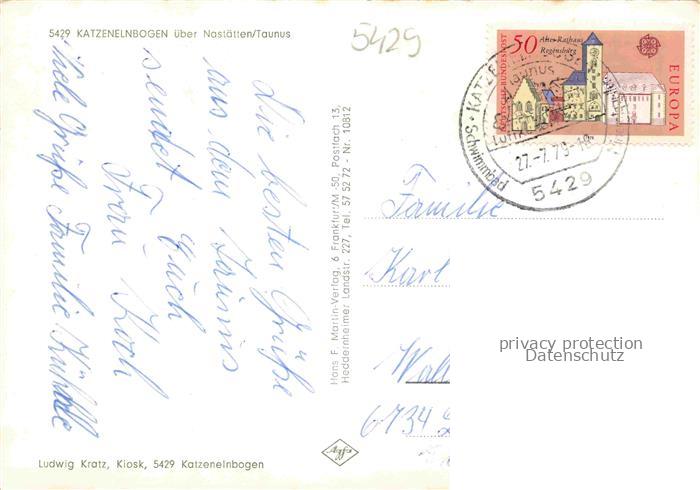 5429 KATZENELNBOGEN über Nastätten/Taunus
5429
die besten Grüße
aus dem Taunus
sendet Euch
Frau Koch
viele Grüße Familie
Hans F. Martin-Verlag, 6 Frankfurt/M-50, Postfach 13,
Heddernheimer Landstr. 227, Tel. 57 52 72 - Nr. 10812
Agfa
Ludwig Kratz, Kiosk, 5429 Katzenelnbogen
DEUTSCHE BUNDESPOST
50 Altes Rathaus
Regensburg
EUROPA
Taunus
Schwimmbad
27.-7.79-18
5429
Familie
Karl
6734
privacy protection
Datenschutz